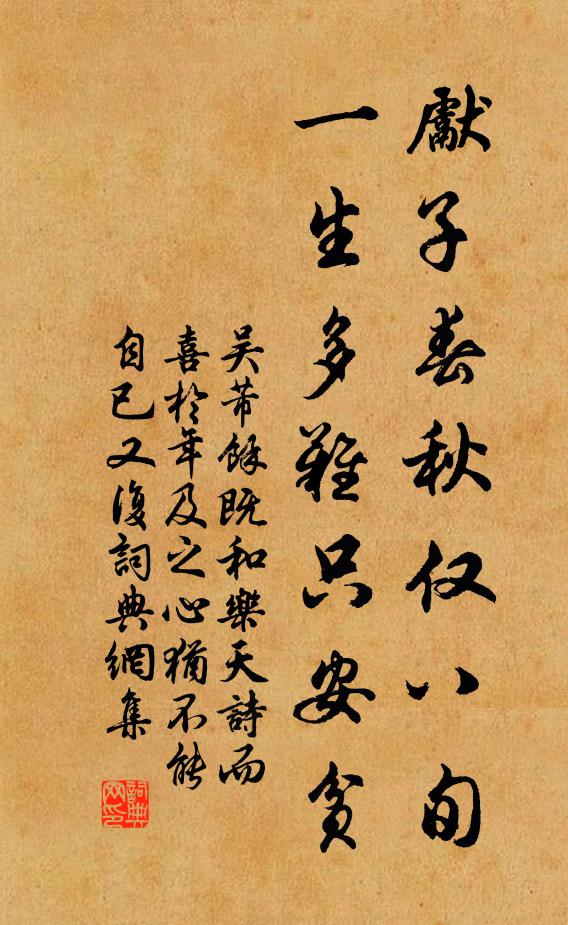 獻子春秋仅八旬
一生多難只安貧
吴芾餘既和樂天詩而
喜於年及之心猶不能
自已又復詞典網集
詞典网印